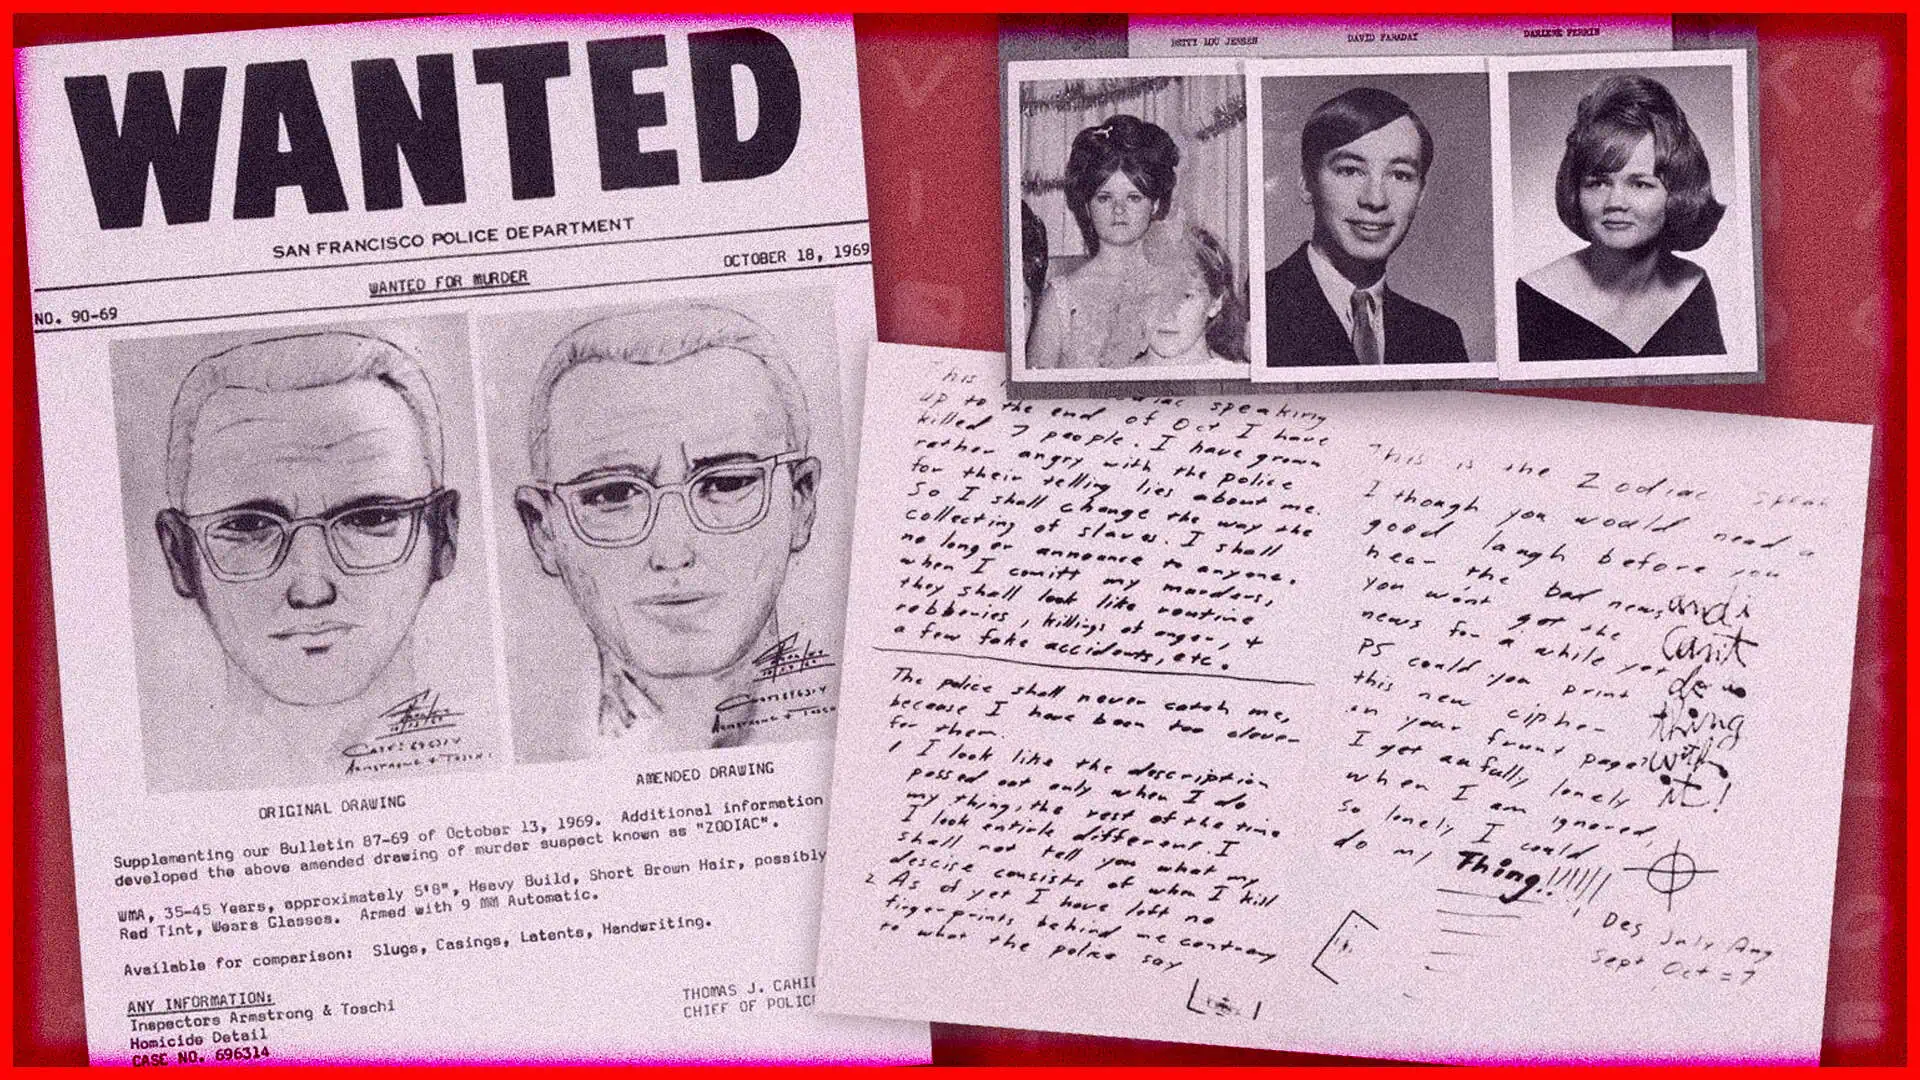 WANTED
SAN FRANCISCO POLICE DEPARTMENT
NO. 90-69
WANTED FOR MURDER
OCTOBER 18, 1969
ORIGINAL DRAWING
AMENDED DRAWING
Supplementing our Bulletin 87-69 of October 13, 1969. Additional information
developed the above amended drawing of murder suspect known as "ZODIAC".
WMA, 35-45 Years, approximately 5'8", Heavy Build, Short Brown Hair, possibly
Red Tint, Wears Glasses. Armed with 9 MM Automatic.
Available for comparison: Slugs, Casings, Latents, Handwriting.
ANY INFORMATION:
Inspectors Armstrong & Toschi
Homicide Detail
CASE NO. 696314
THOMAS J. CAHIL
CHIEF OF POLIC
BETTY LOU JENSEN
DAVID FARADAY
DARLENE FERRIN
This speaking
up to the end of Oct I have
killed 7 people. I have grown
rather angry with the police
for their telling lies about me.
So I shall change the way the
collecting of slaves. I shall
no longer announce to anyone.
when I comitt my murders,
they shall look like routine
robberies, killings of anger, +
a few fake accidents, etc.
The police shall never catch me,
because I have been too clever
for them.
1 I look like the description
passed out only when I do
my thing, the rest of the time
I look entirle different. I
shall not tell you what my
descise consists of when I kill
2 As of yet I have left no
fingerprints behind me contrary
to what the police say
This is the Zodiac speak
I though you would need a
good laugh before you
hear the bad news
you won't get the
news for a while yet
PS could you print
this new cipher
in your frunt page?
I get awfully lonely
when I am ignored,
so lonely I could
do my Thing!!!!!!
and i
cant
do a
thing
with
it!
Des July Aug
Sept Oct = 7